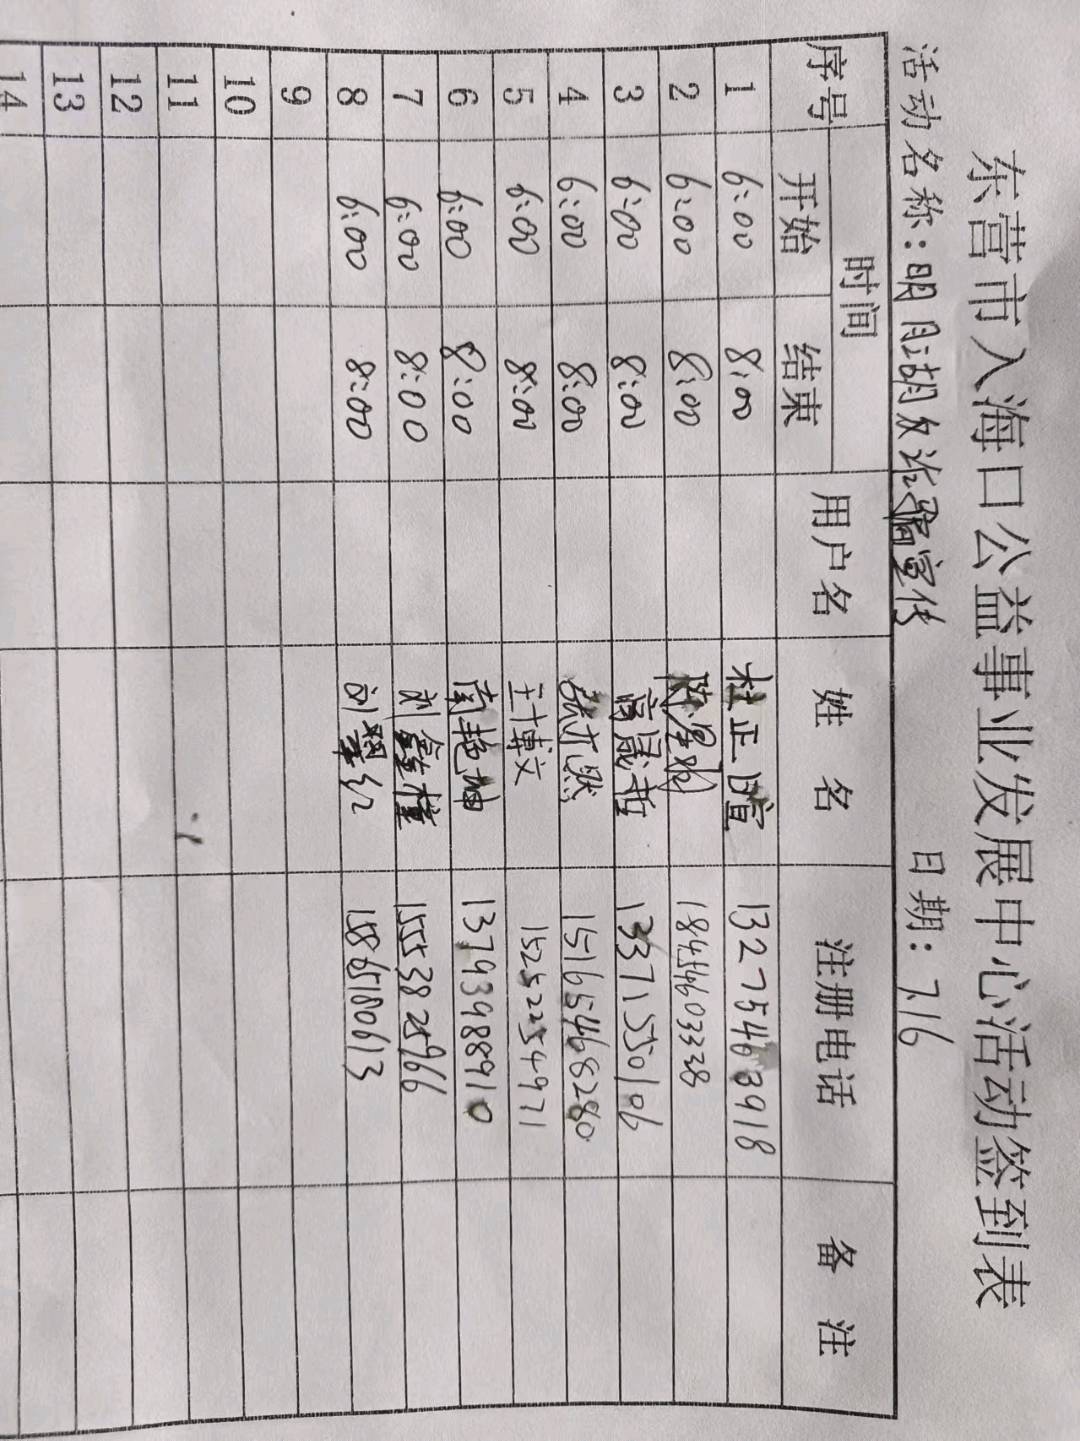 东营市入海口公益事业发展中心活动签到表
活动名称：明月湖反诈骗宣传 日期：7.16
序号 时间 用户名 姓名 注册电话 备注
开始 结束
1 6:00 8:00 杜正暄 13275463918
2 6:00 8:00 18454603338
3 6:00 8:00 高晟哲 13371550106
4 6:00 8:00 15165468280
5 6:00 8:00 王博文 15252254971
6 6:00 8:00 13793988910
7 6:00 8:00 刘鑫 15553825966
8 6:00 8:00 刘翠红 15865180613
9
10
11
12
13
14